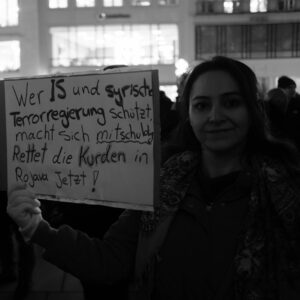 Wer IS und syrische
Terrorregierung schützt,
macht sich mitschuldig
Rettet die Kurden in
Rojava Jetzt !